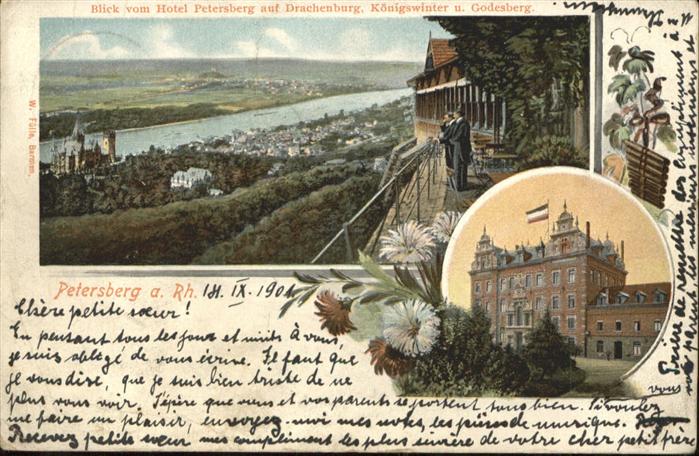 Blick vom Hotel Petersberg auf Drachenburg, Königswinter u. Godesberg.
W. Fülle, Barmen.
Petersberg a. Rh. 14. IX. 1901
Chère petite sœur!
En pensant tous les jours et nuits à vous,
je suis obligé de vous écrire. Il faut que
je vous dise, que je suis bien triste de ne
plus vous voir. J'éspère que vous et vos parents se portent tous bien. Si voulez
me faire un plaisir, envoyez-moi mes notes, les pièces de musique.
Recevez petite sœur mes compliments les plus sincère de votre cher petit frère
vous
Prière de remettre des compliments à